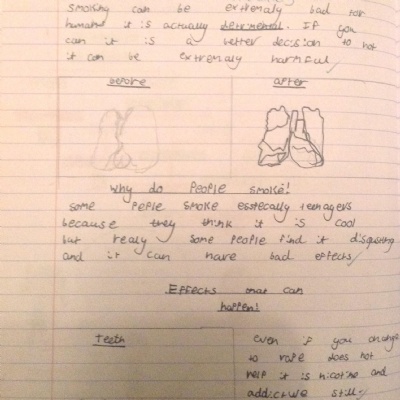 smoking can be extremaly bad for
humans it is actually detrimental. If you
can it is a better decision to not
it can be extremaly harmful
before
after
why do people smoke!
some peple smoke esstecally teenagers
because they think it is cool
but realy some people find it disgusting
and it can have bad effects
Effects that can
happen!
Teeth
even if you change
to vape does not
help it is nicotine and
addictive still